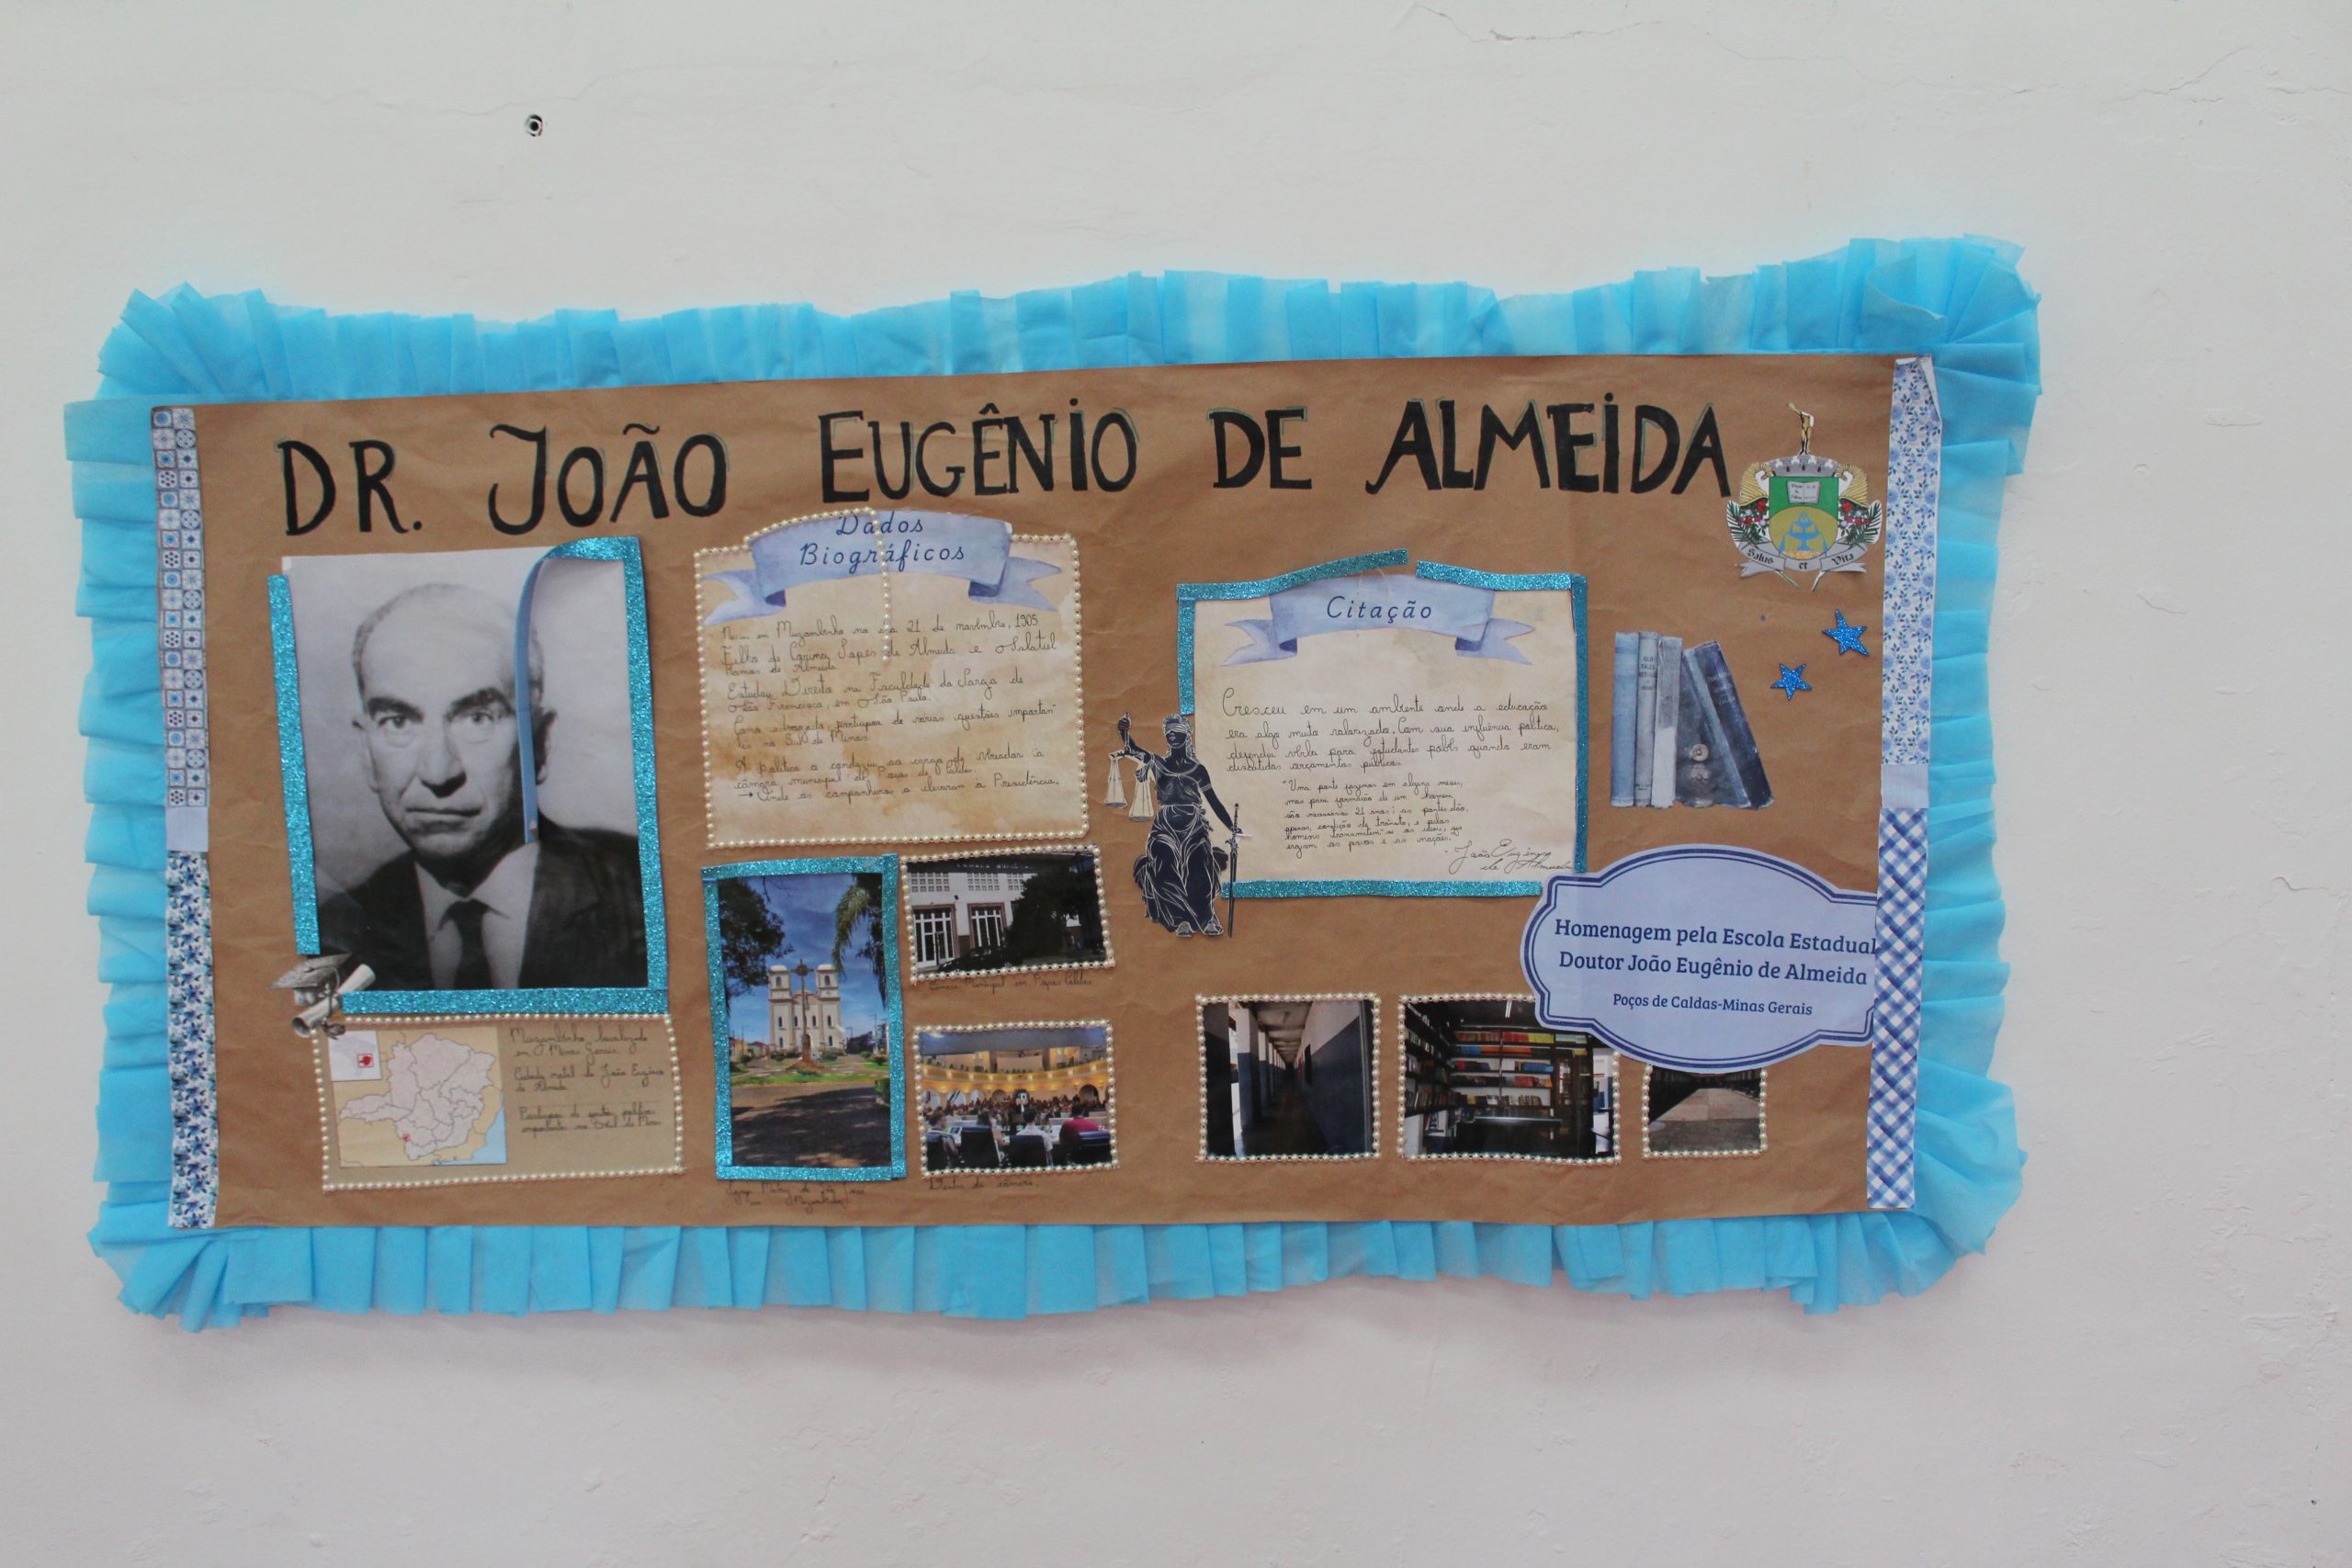 DR. JOÃO EUGÊNIO DE ALMEIDA
Dados
Biográficos
em Muzambinho no dia 21 de novembro, 1905
Filho de Corina Lopes de Almeida e Salatiel
Ramos de Almeida
Estudou Direito na Faculdade do Largo de
São Francisco, em São Paulo.
Como advogado, participou de várias questões importan-
tes no Sul de Minas.
A política o conduziu ao cargo de vereador à
câmara municipal de Poços de Caldas.
→ Onde os companheiros o elevaram à Presidência.
Citação
Cresceu em um ambiente onde a educação
era algo muito valorizado. Com sua influência política,
defendia verba para estudantes pobres quando eram
discutidos orçamentos públicos.
"Uma ponte fazemos em alguns meses,
mas para formação de um homem
são necessários 21 anos; as pontes dão,
apenas, condição de trânsito, e pelos
homens transmitem-se as ideias, que
erguem os povos e as nações."
- João Eugênio
de Almeida
Salus et Vita
Homenagem pela Escola Estadual
Doutor João Eugênio de Almeida
Poços de Caldas-Minas Gerais
Muzambinho, localizado
em Minas Gerais.
Cidade natal de João Eugênio
de Almeida
Participou de questões políticas
importantes no Sul de Minas
Câmara Municipal em Poços Caldas
Dentro da câmara.
Igreja Matriz de São José
Muzambinho